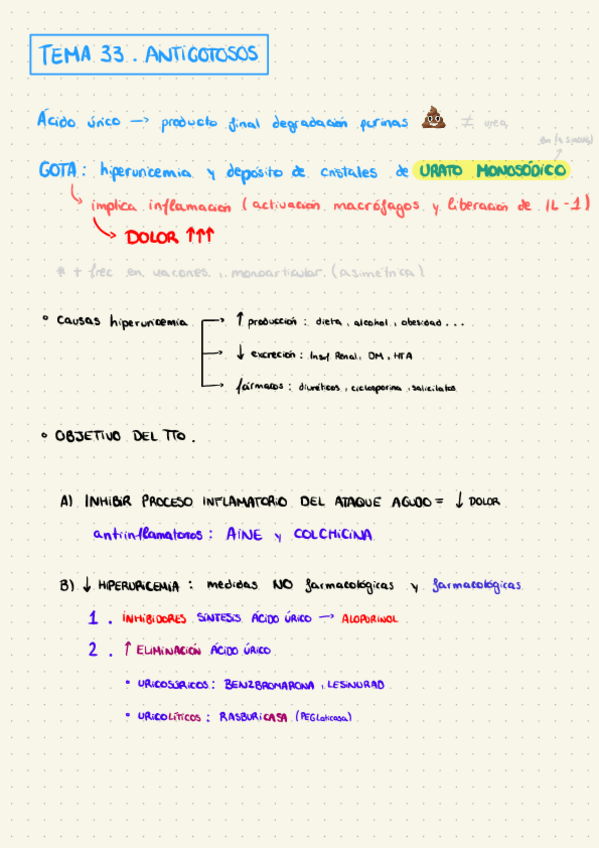 TEMA 33. ANTIGOTOSOS
Ácido úrico → producto final degradación purinas 💩 ≠ urea
en (a sinovial)
GOTA: hiperuricemia y depósito de cristales de URATO MONOSÓDICO
implica inflamación (activación macrófagos y liberación de IL-1)
DOLOR ↑↑↑
* + frec en varones, monoarticular (asimétrica)
° causas hiperuricemia
↑ producción: dieta, alcohol, obesidad...
↓ excreción: Insuf Renal, DM, HTA
fármacos: diuréticos, ciclosporina, salicilatos
° OBJETIVO DEL TTO.
A) INHIBIR PROCESO INFLAMATORIO DEL ATAQUE AGUDO = ↓ DOLOR
antiinflamatorios: AINE y COLCHICINA
B) ↓ HIPERURICEMIA: medidas NO farmacológicas y farmacológicas
1. INHIBIDORES SÍNTESIS ÁCIDO ÚRICO → ALOPURINOL
2. ↑ ELIMINACIÓN ÁCIDO ÚRICO
• URICOSÚRICOS: BENZBROMARONA, LESINURAD
• URICOLÍTICOS: RASBURICASA (PEGloticasa)